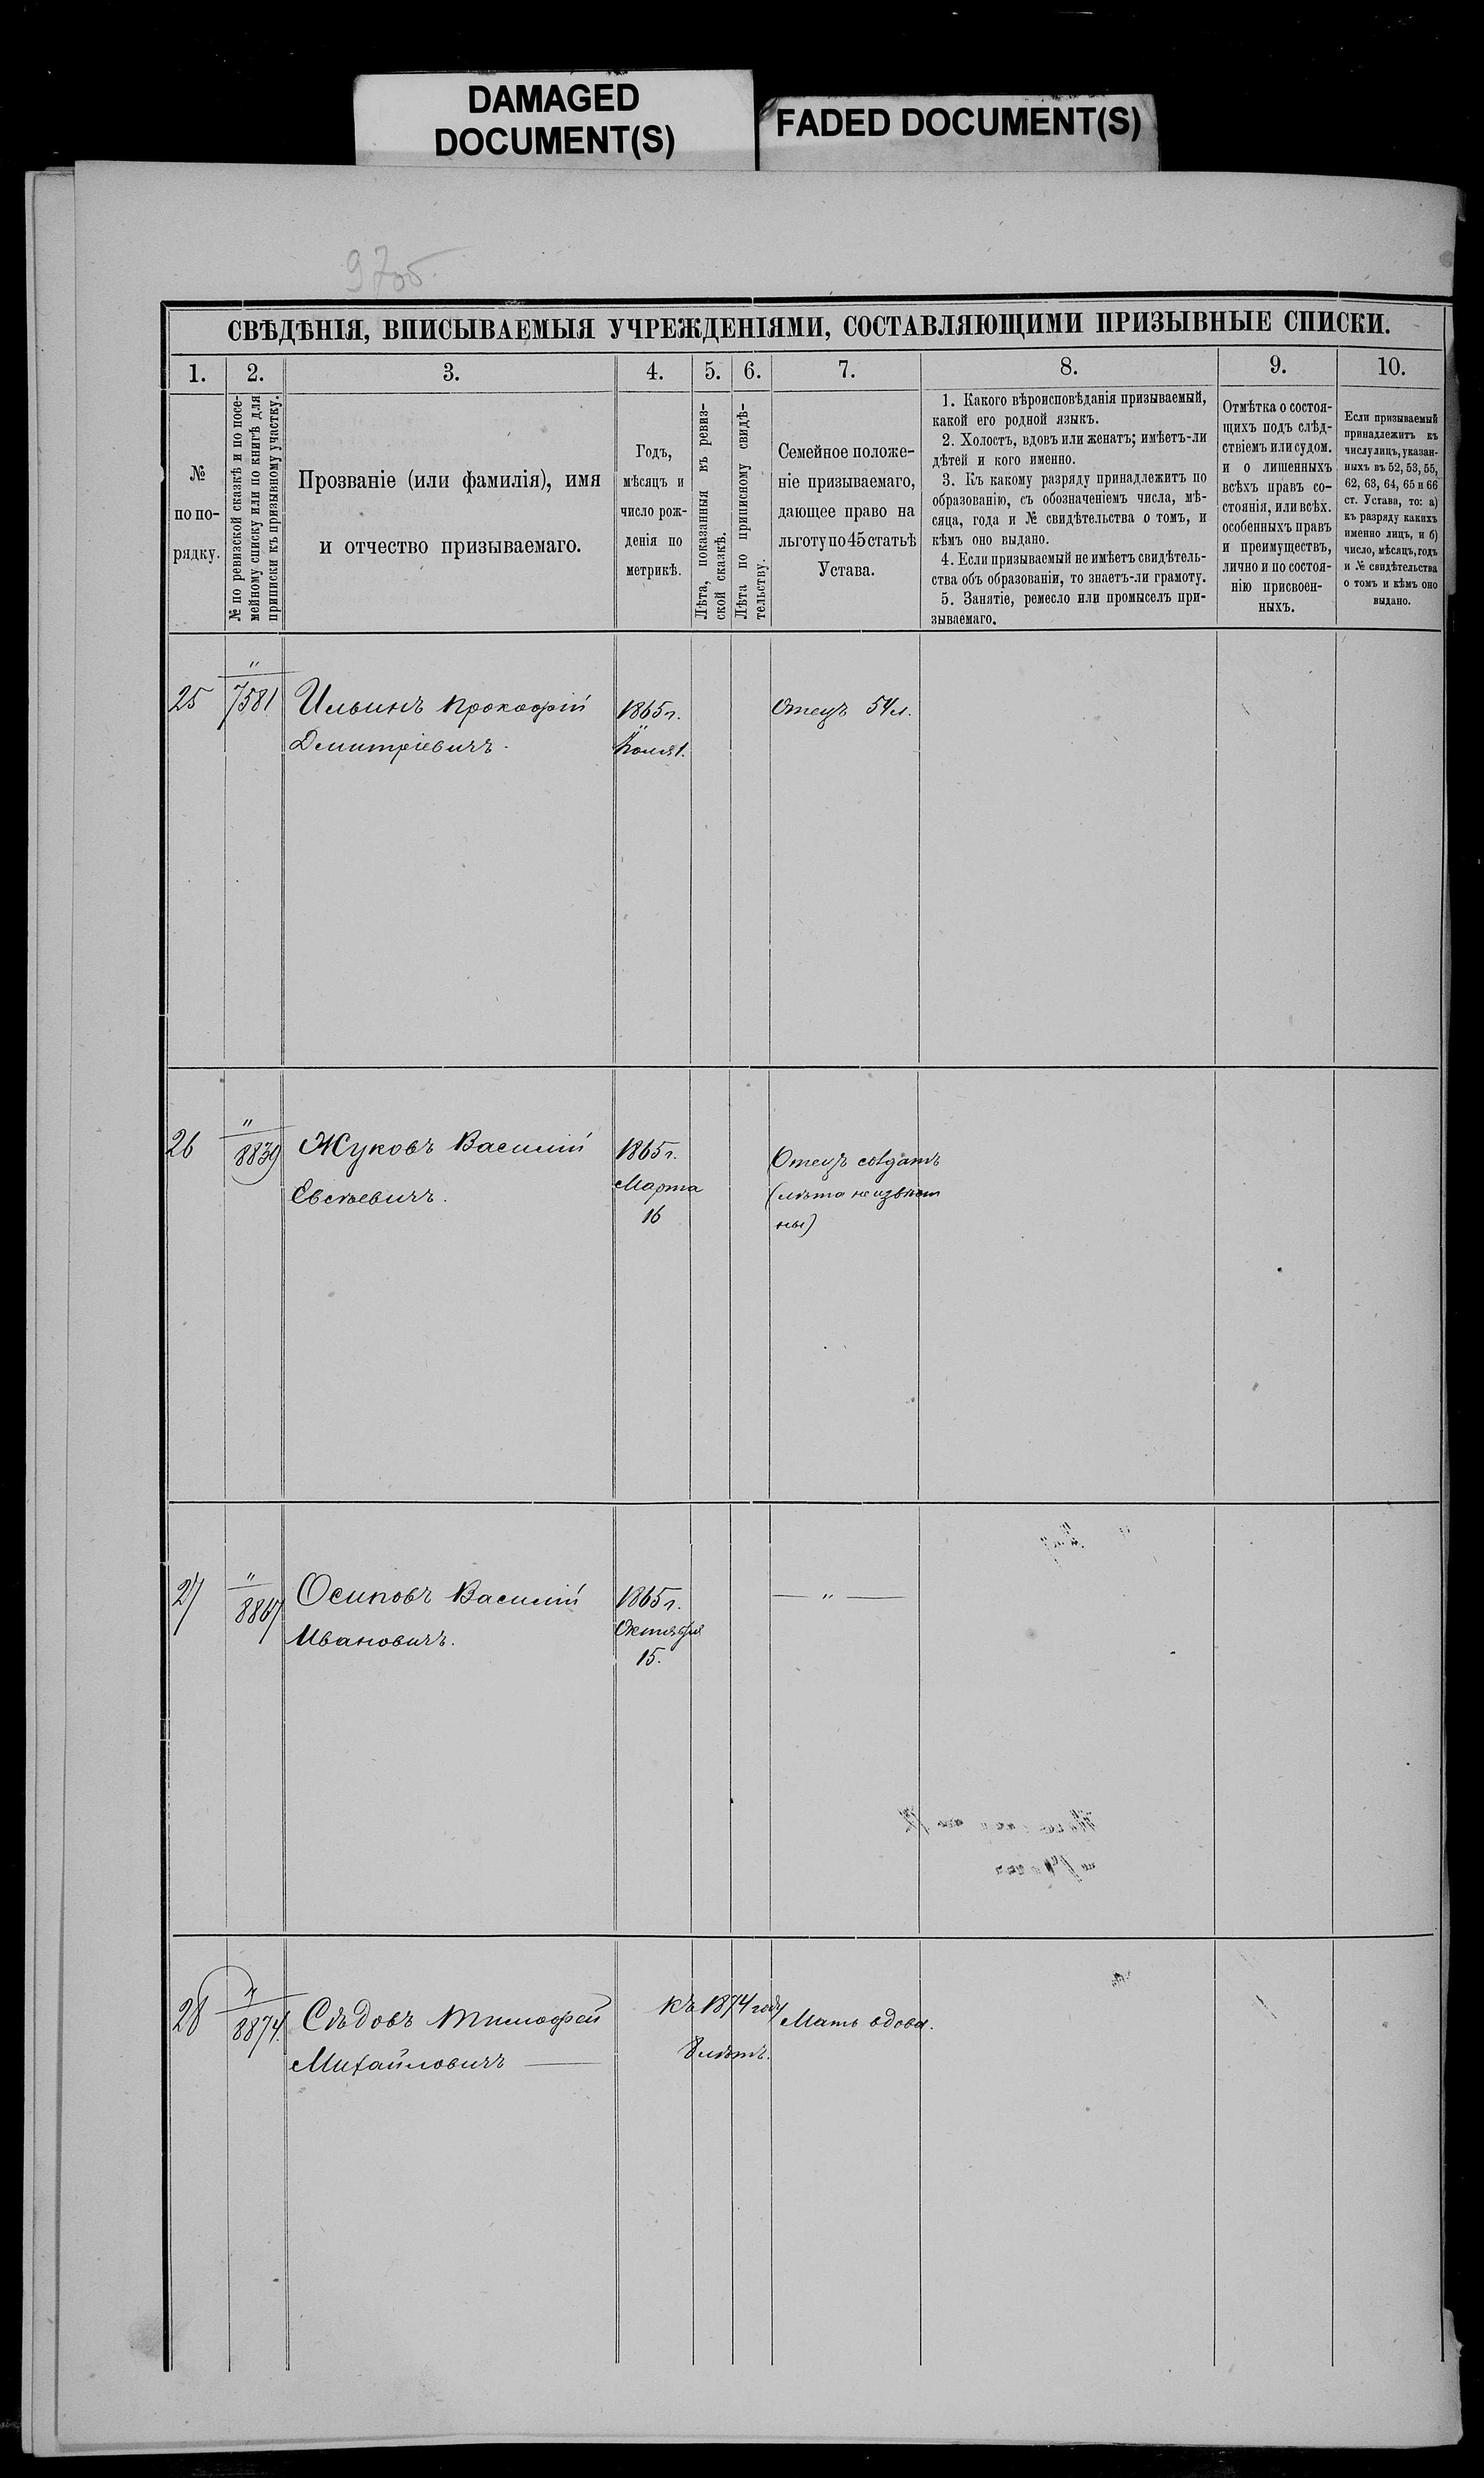 DAMAGED
DOCUMENT(S)
FADED DOCUMENT(S)
СВѢДѢНІЯ, ВПИСЫВАЕМЫЯ УЧРЕЖДЕНІЯМИ, СОСТАВЛЯЮЩИМИ ПРИЗЫВНЫЕ СПИСКИ.
1.
2.
3.
4.
5.
6.
7.
8.
9.
10.
№
по по-
рядку.
№ по ревизской сказкѣ и по посе-
мейному списку или по книгѣ для
приписки къ призывному участку.
Прозваніе (или фамилія), имя
и отчество призываемаго.
Годъ,
мѣсяцъ и
число рож-
денія по
метрикѣ.
Лѣта, показанныя въ ревиз-
ской сказкѣ.
Лѣта по приписному свидѣ-
тельству.
Семейное положе-
ніе призываемаго,
дающее право на
льготу по 45 статьѣ
Устава.
1. Какого вѣроисповѣданія призываемый,
какой его родной языкъ.
2. Холостъ, вдовъ или женатъ; имѣетъ-ли
дѣтей и кого именно.
3. Къ какому разряду принадлежитъ по
образованію, съ обозначеніемъ числа, мѣ-
сяца, года и № свидѣтельства о томъ, и
кѣмъ оно выдано.
4. Если призываемый не имѣетъ свидѣтель-
ства объ образованіи, то знаетъ-ли грамоту.
5. Занятіе, ремесло или промыселъ при-
зываемаго.
Отмѣтка о состоя-
щихъ подъ слѣд-
ствіемъ или судом.
и о лишенныхъ
всѣхъ правъ со-
стоянія, или всѣх.
особенныхъ правъ
и преимуществъ,
лично и по состоя-
нію присвоен-
ныхъ.
Если призываемый
принадлежитъ къ
числу лицъ, указан-
ныхъ въ 52, 53, 55,
62, 63, 64, 65 и 66
ст. Устава, то: а)
къ разряду какихъ
именно лицъ, и б)
число, мѣсяцъ, годъ
и № свидѣтельства
о томъ и кѣмъ оно
выдано.
25 " 7581 Ильинъ Прокофій 1865 г. Отецъ 54 л.
Дмитріевичъ.
26 " 8839 Жуковъ Василій 1865 г. Отецъ солдатъ
Евсѣевичъ. Марта (лѣта неизвѣст
16 ны)
27 " 8867 Осиповъ Василій 1865 г. — " —
Ивановичъ. Октября
15.
28 " 8874. Сѣдовъ Тимофей къ 1874 году Мать вдова.
Михайловичъ — 8 лѣтъ.